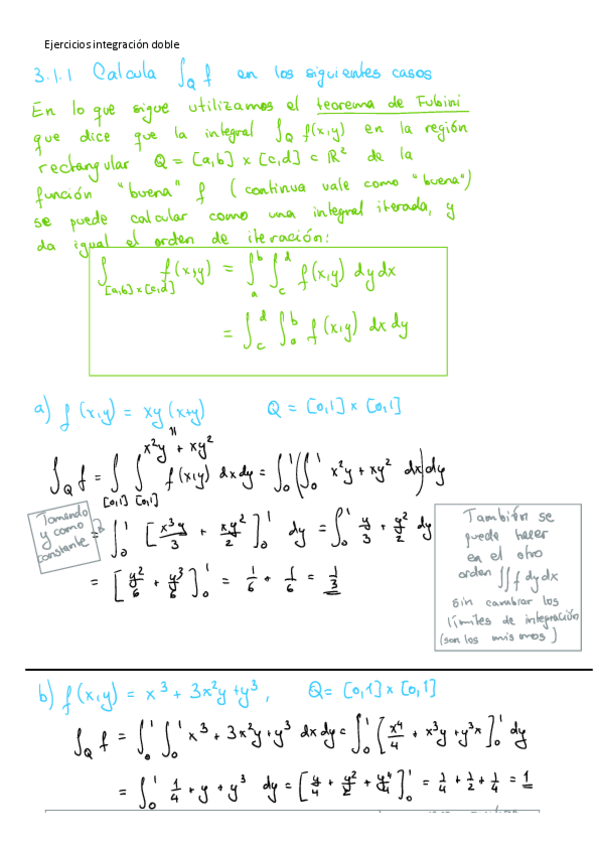 Ejercicios integración doble
3.1.1 Calcula ∫_Q f en los siguientes casos
En lo que sigue utilizamos el teorema de Fubini
que dice que la integral ∫_Q f(x,y) en la región
rectangular Q = [a,b] x [c,d] ⊂ ℝ² de la
función "buena" f (continua vale como "buena")
se puede calcular como una integral iterada, y
da igual el orden de iteración:
∫_{[a,b]x[c,d]} f(x,y) = ∫_a^b ∫_c^d f(x,y) dy dx
= ∫_c^d ∫_a^b f(x,y) dx dy
a) f(x,y) = xy(x+y) Q = [0,1] x [0,1]
x²y + xy²
∫_Q f = ∫_{[0,1]} ∫_{[0,1]} f(x,y) dx dy = ∫_0^1 (∫_0^1 x²y + xy² dx) dy
Tomando
y como
constante
= ∫_0^1 [x³y/3 + xy²/2]_0^1 dy = ∫_0^1 y/3 + y²/2 dy
= [y²/6 + y³/6]_0^1 = 1/6 + 1/6 = 1/3
También se
puede hacer
en el otro
orden ∬ f dy dx
sin cambiar los
límites de integración
(son los mismos)
b) f(x,y) = x³ + 3x²y + y³, Q = [0,1] x [0,1]
∫_Q f = ∫_0^1 ∫_0^1 x³ + 3x²y + y³ dx dy = ∫_0^1 [x⁴/4 + x³y + y³x]_0^1 dy
= ∫_0^1 1/4 + y + y³ dy = [y/4 + y²/2 + y⁴/4]_0^1 = 1/4 + 1/2 + 1/4 = 1